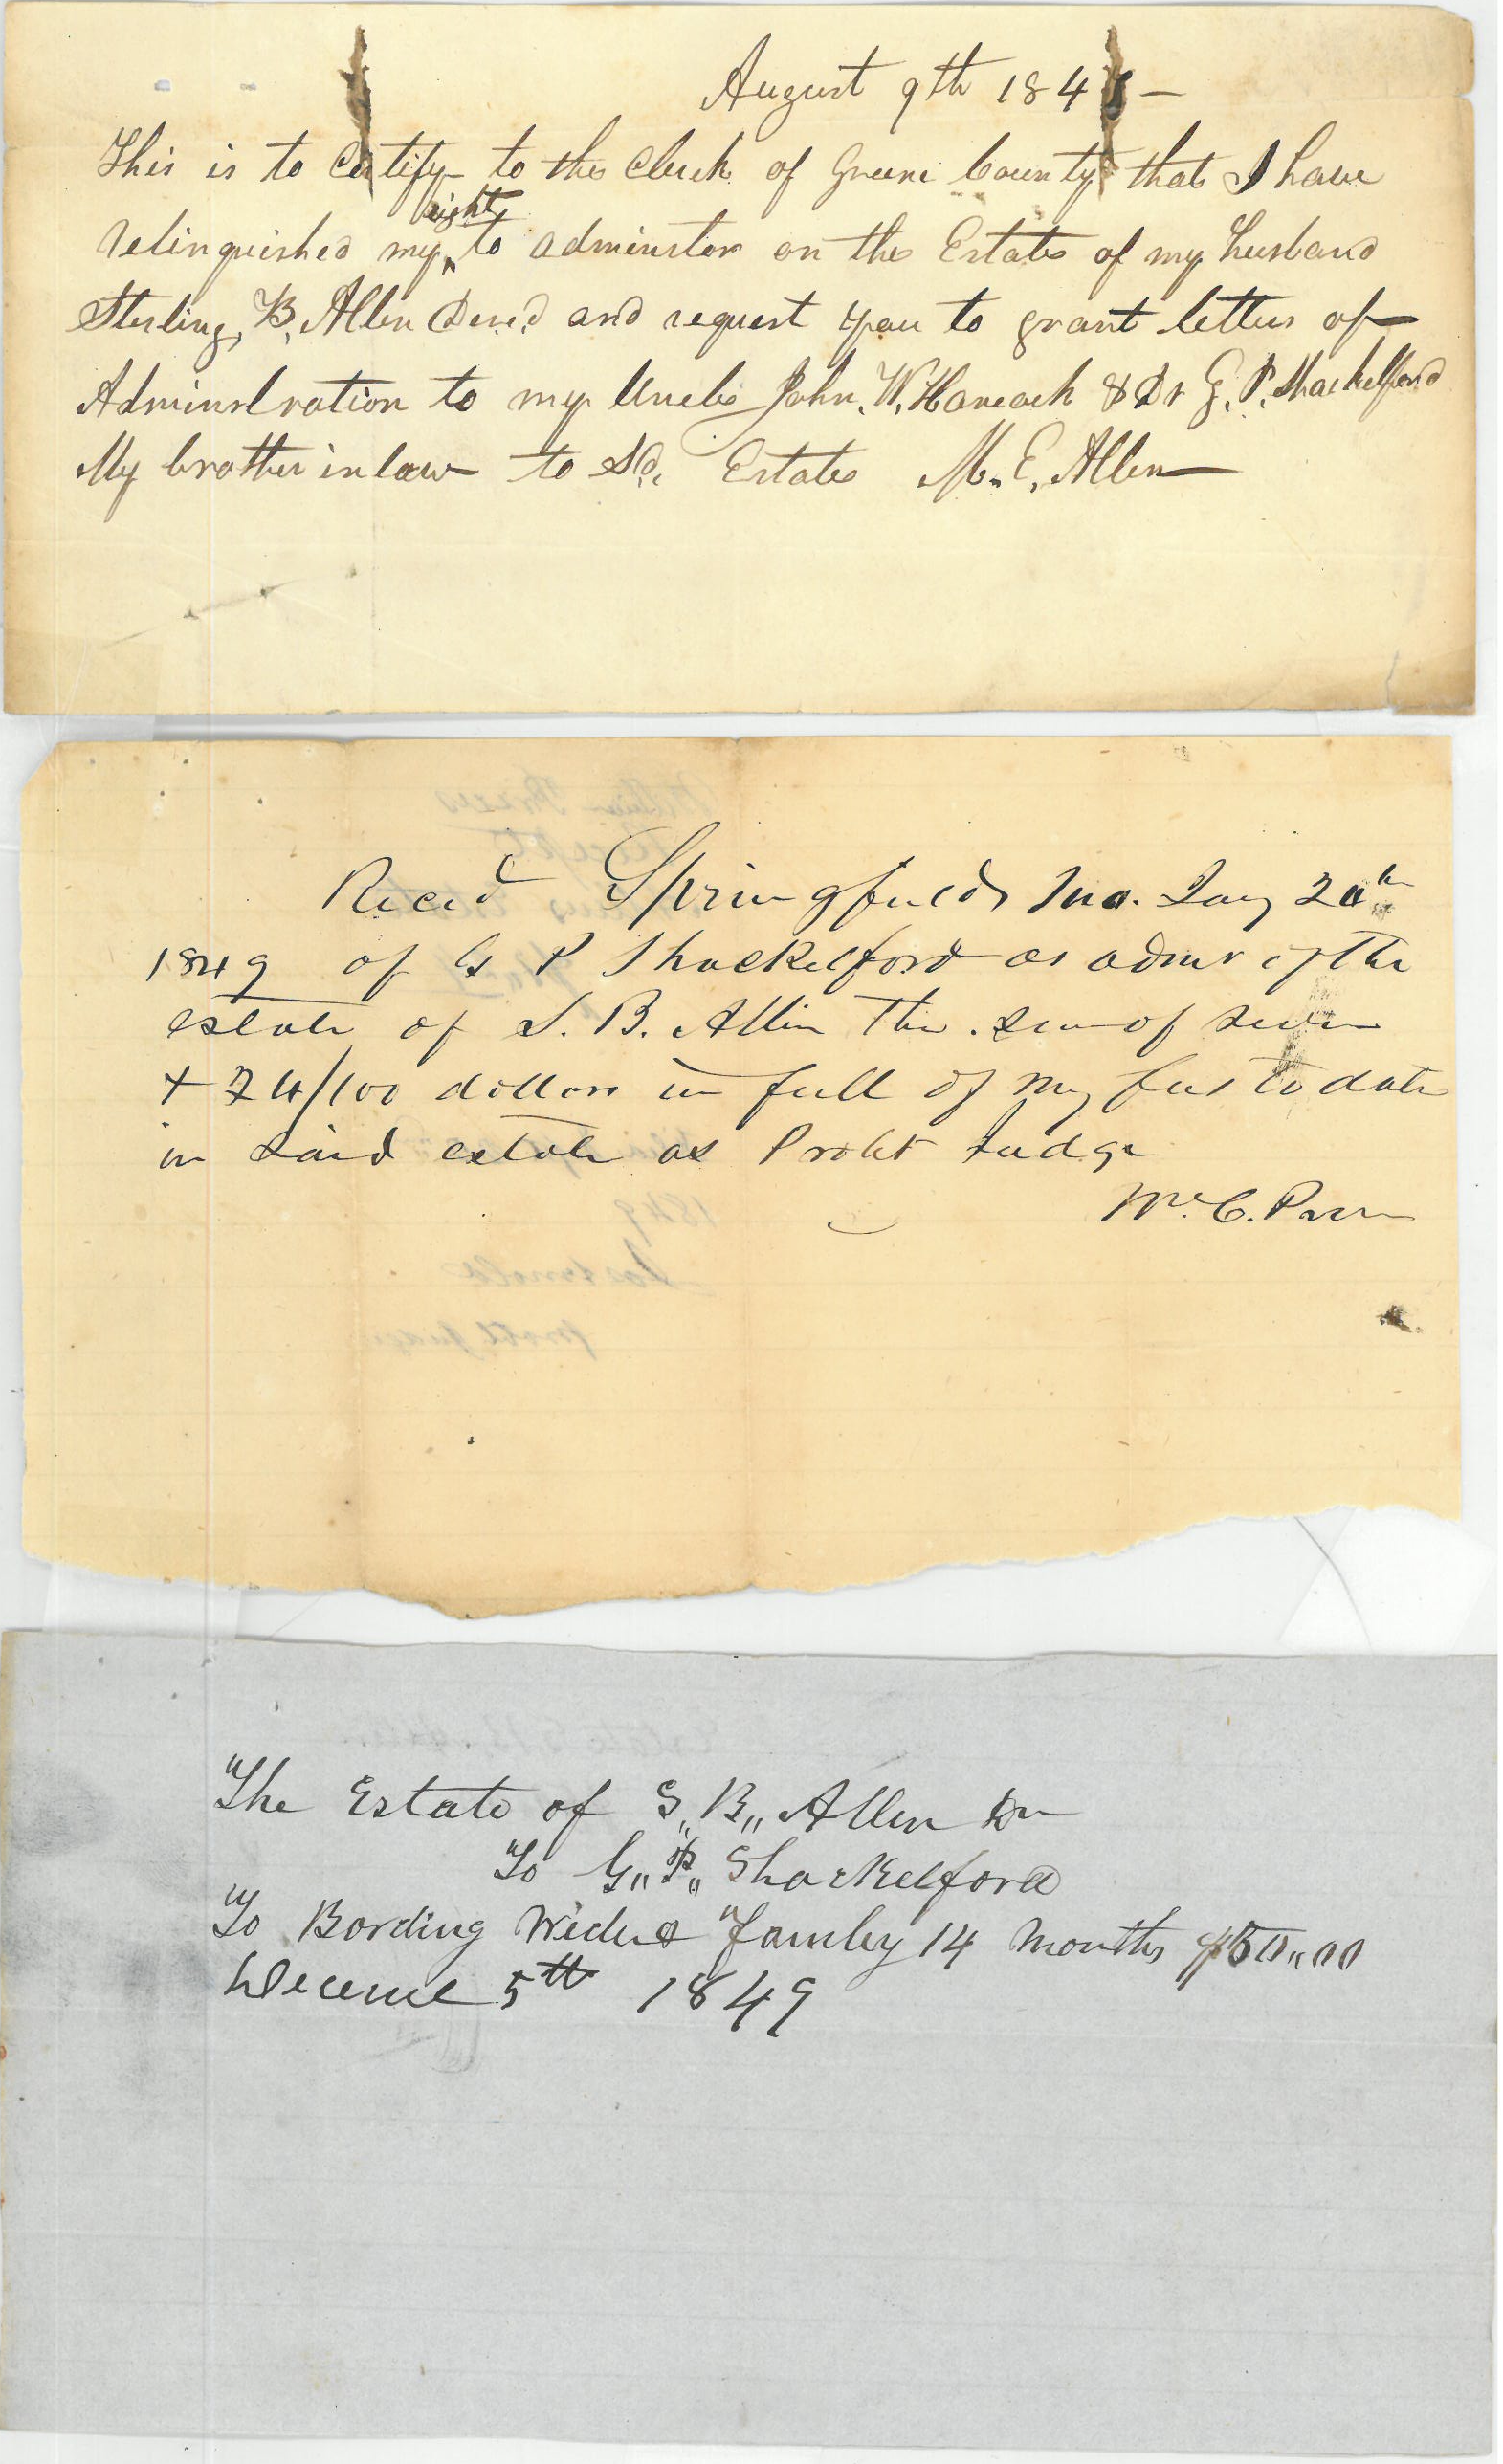 August 9th 1848 —
This is to Certify to the Clerk of Green County that I have
right
relinquished my to adminster on the Estate of my husband
Sterling, B, Allen Decd and request you to grant letters of
Adminstration to my Uncle John, W, Hancock & Dr G, P, Shackelford
My brother in law to Sd, Estate M. E, Allen
Recd Springfield Mo. 20th
1849 of G P Shackelford as admr of the
estate of S. B. Allen The sum of seven
+ 24/100 dollars in full of my fees to date
in said estate as Probt Judge
Wm C. Price
The Estate of S,, B,, Allen Dr
To G,, P,, Shackelford
To Bording & Famley 14 Months $50,,00
5th 1849